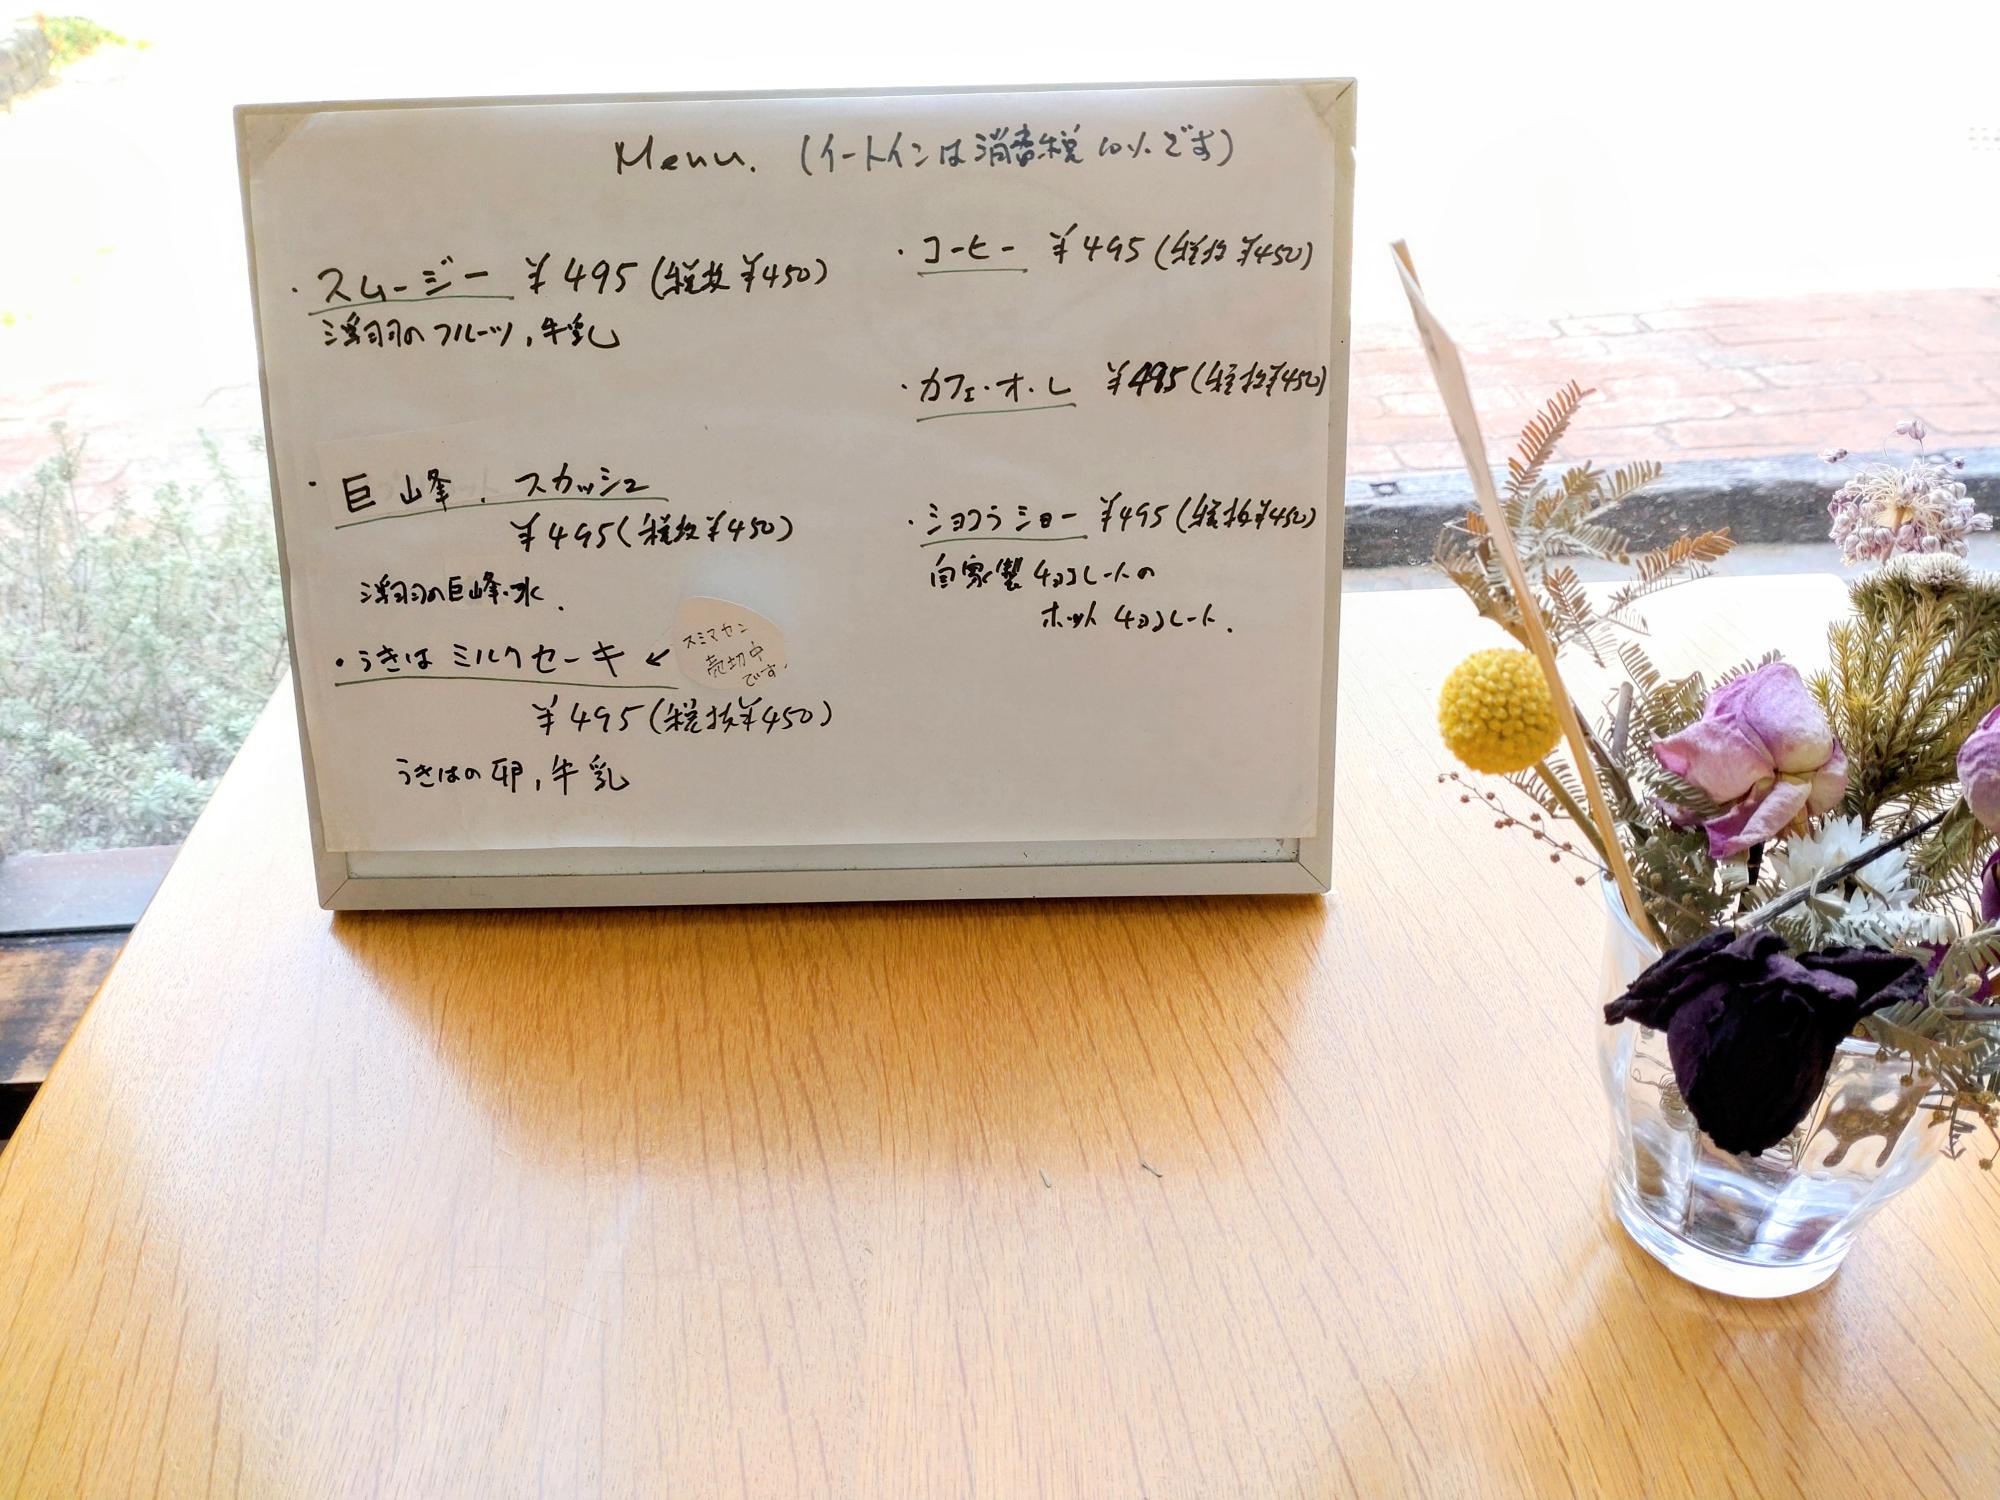 Menu. (イートインは消費税10%です)
・スムージー ¥495(税抜¥450)
浮羽のフルーツ,牛乳
・巨峰.スカッシュ
¥495(税抜¥450)
浮羽の巨峰・氷.
・うきはミルクセーキ ←
スミマセン
売切中
です.
¥495(税抜¥450)
うきはの卵,牛乳
・コーヒー ¥495(税抜¥450)
・カフェ・オ・レ ¥495(税抜¥450)
・ショコラショー ¥495(税抜¥450)
自家製チョコレートの
ホットチョコレート.